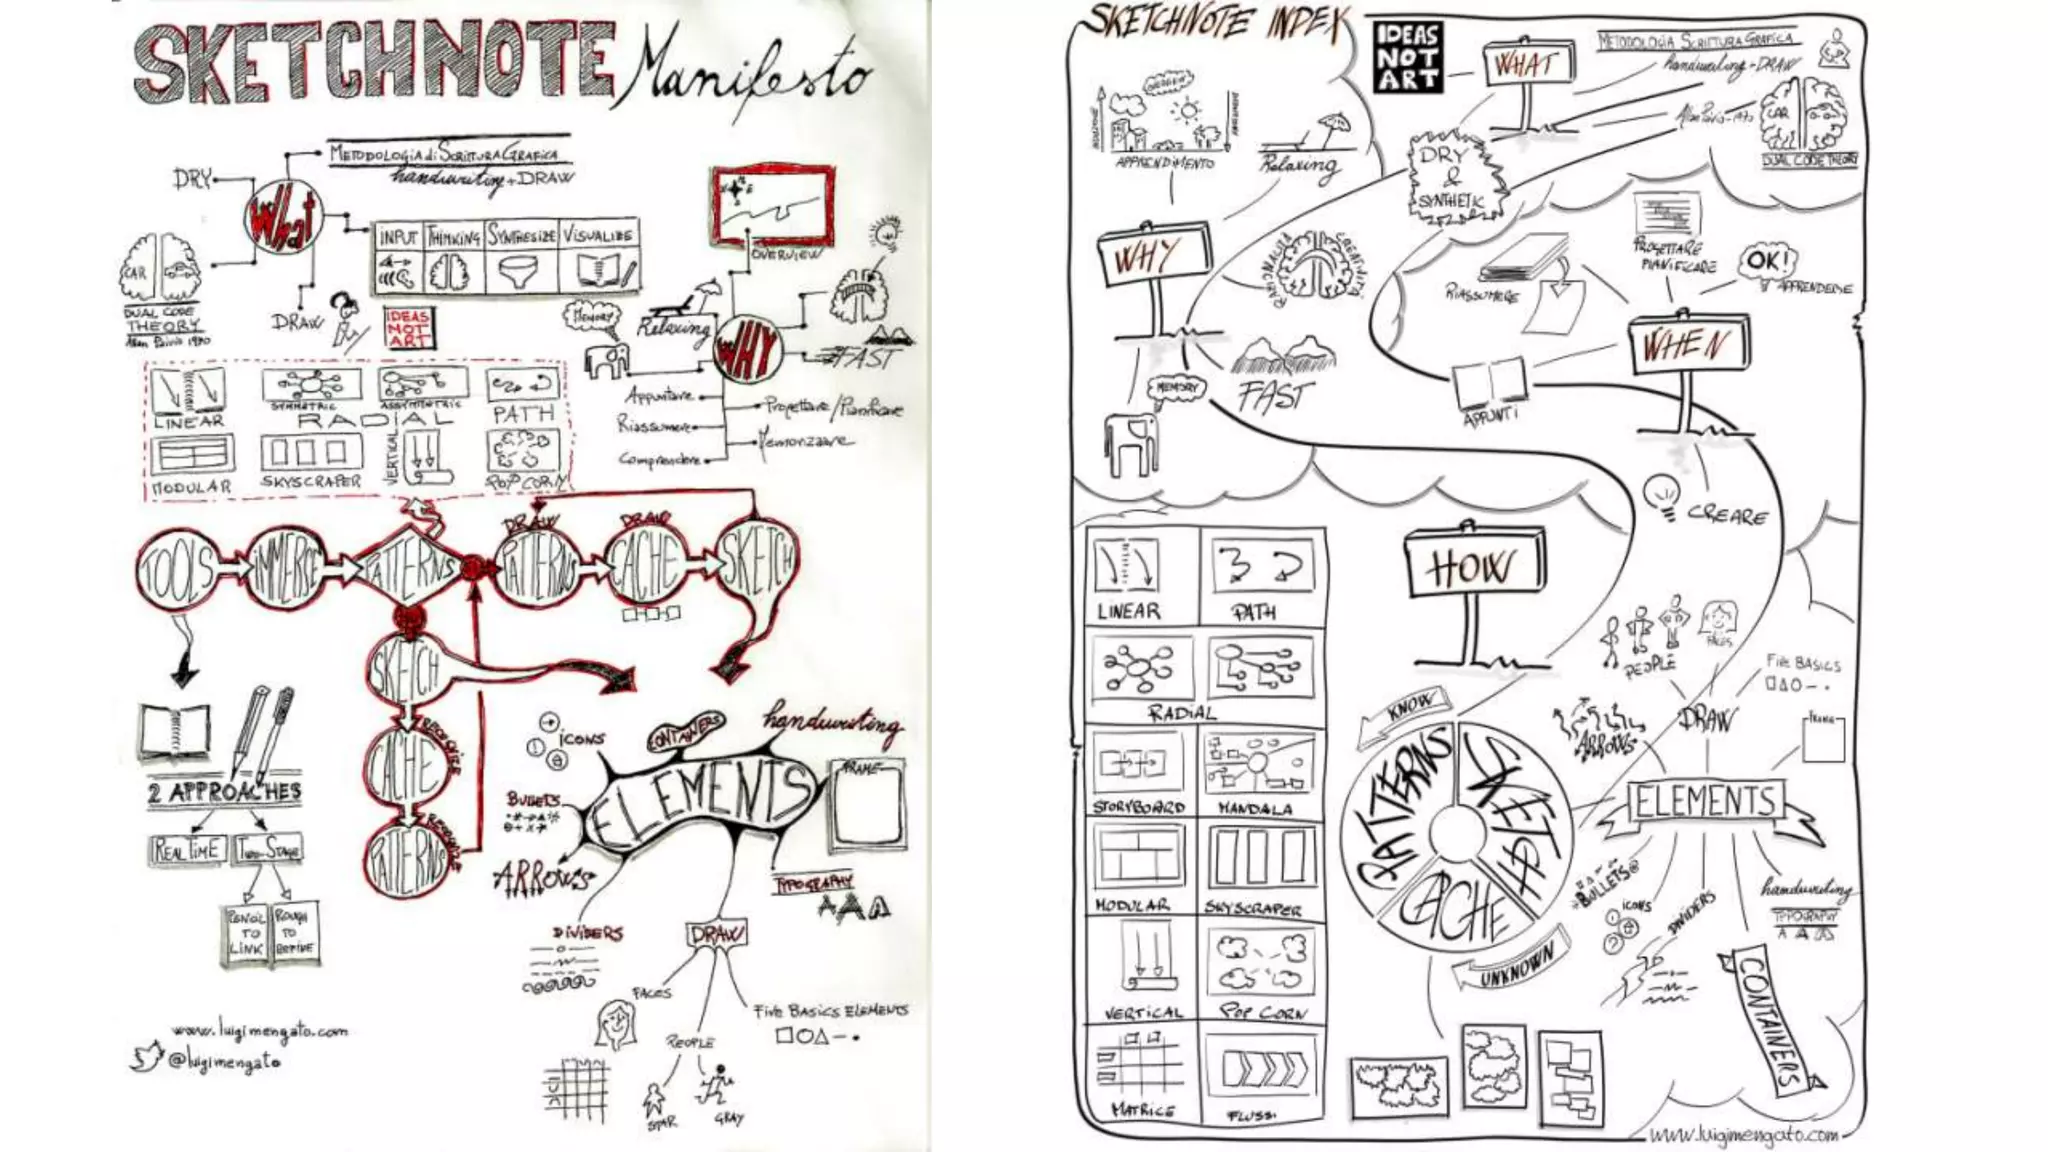 SKETCHNOTE Manifesto
METODOLOGIA di SCRITTURA GRAFICA
handwriting + DRAW
DRY
What
INPUT THINKING SYNTHESIZE VISUALIZE
CAR
DUAL CODE
THEORY
Allan Paivio 1970
DRAW
IDEAS
NOT
ART
OVERVIEW
MEMORY
Relaxing
WHY
FAST
Appuntare
Riassumere
Comprendere
Progettare/Pianificare
Memorizzare
LINEAR
SYMMETRIC
ASSYMMETRIC
RADIAL
PATH
MODULAR
SKYSCRAPER
VERTICAL
POP CORN
TOOLS
IMMERSE
PATTERNS
DRAW
PATTERNS
DRAW
CACHE
SKETCH
SKETCH
RECOGNIZE
CACHE
RECOGNIZE
PATTERNS
2 APPROACHES
REAL TIME
TWO-STAGE
PENCIL
TO
LINK
ROUGH
TO
REFINE
ICONS
CONTAINERS
handwriting
BULLETS
ELEMENTS
FRAME
ARROWS
TYPOGRAPHY
AAA
DIVIDERS
DRAW
FACES
PEOPLE
FIVE BASICS ELEMENTS
STAR
GRAY
www.luigimengato.com
@luigimengato
SKETCHNOTE INDEX
IDEAS
NOT
ART
WHAT
METODOLOGIA SCRITTURA GRAFICA
handwriting + DRAW
Allan Paivio - 1970
CAR
DUAL CODE THEORY
DRY
&
SYNTHETIC
APPRENDIMENTO
Relaxing
WHY
RAZIONALITÀ
CREATIVITÀ
FAST
MEMORY
RIASSUMERE
PROGETTARE
PIANIFICARE
OK!
APPRENDERE
WHEN
APPUNTI
CREARE
HOW
LINEAR
PATH
RADIAL
STORYBOARD
MANDALA
MODULAR
SKYSCRAPER
VERTICAL
POP CORN
MATRICE
FLUSSI
KNOW
PATTERNS
SKETCH
CACHE
UNKNOWN
PEOPLE
FACES
FIVE BASICS
ARROWS
DRAW
FRAME
ELEMENTS
BULLETS
ICONS
DIVIDERS
handwriting
TYPOGRAPHY
A A A
CONTAINERS
www.luigimengato.com